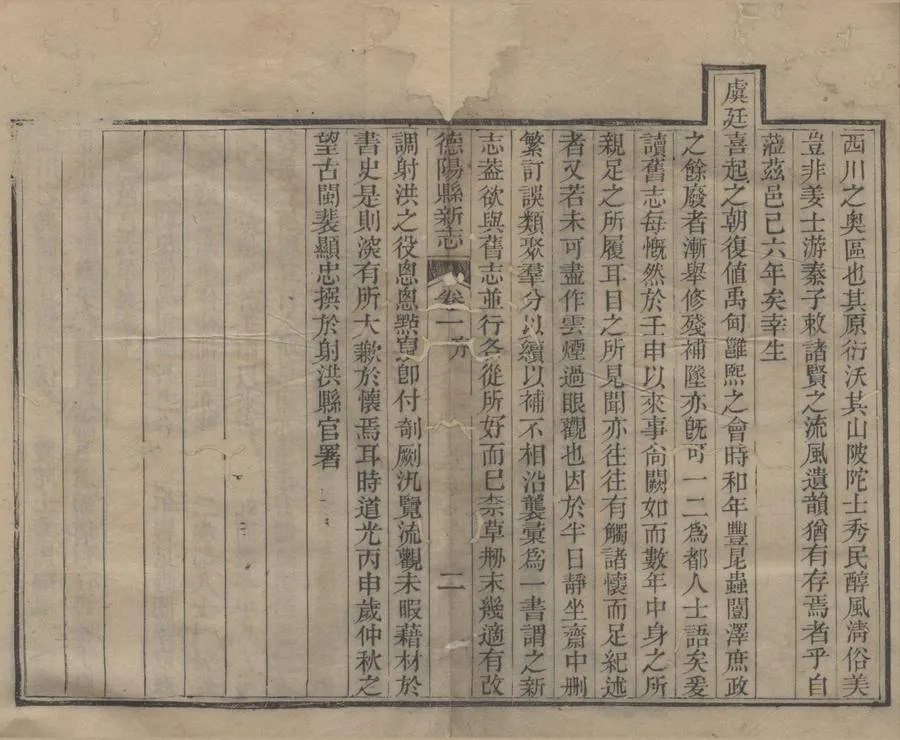 西川之奧區也其原衍沃其山陂陀士秀民醇風淸俗美
豈非姜士游秦子敕諸賢之流風遺韻猶有存焉者乎自
蒞茲邑已六年矣幸生
虞廷喜起之朝復值禹甸雝熙之會時和年豐昆蟲闓澤庶政
之餘廢者漸舉修殘補墜亦旣可一二爲都人士語矣爰
讀舊志每慨然於壬申以來事尙闕如而數年中身之所
親足之所履耳目之所見聞亦往往有觸諸懷而足紀述
者又若未可盡作雲煙過眼觀也因於半日靜坐齋中刪
繁訂誤類聚羣分以續以補不相沿襲彙爲一書謂之新
志葢欲與舊志並行各從所好而已柰草刱未幾適有改
德陽縣新志 卷一 序 二
調射洪之役悤悤點竄卽付剞劂汎覽流觀未暇藉材於
書史是則深有所大歉於懷焉耳時道光丙申歲仲秋之
望古閩裴顯忠撰於射洪縣官署